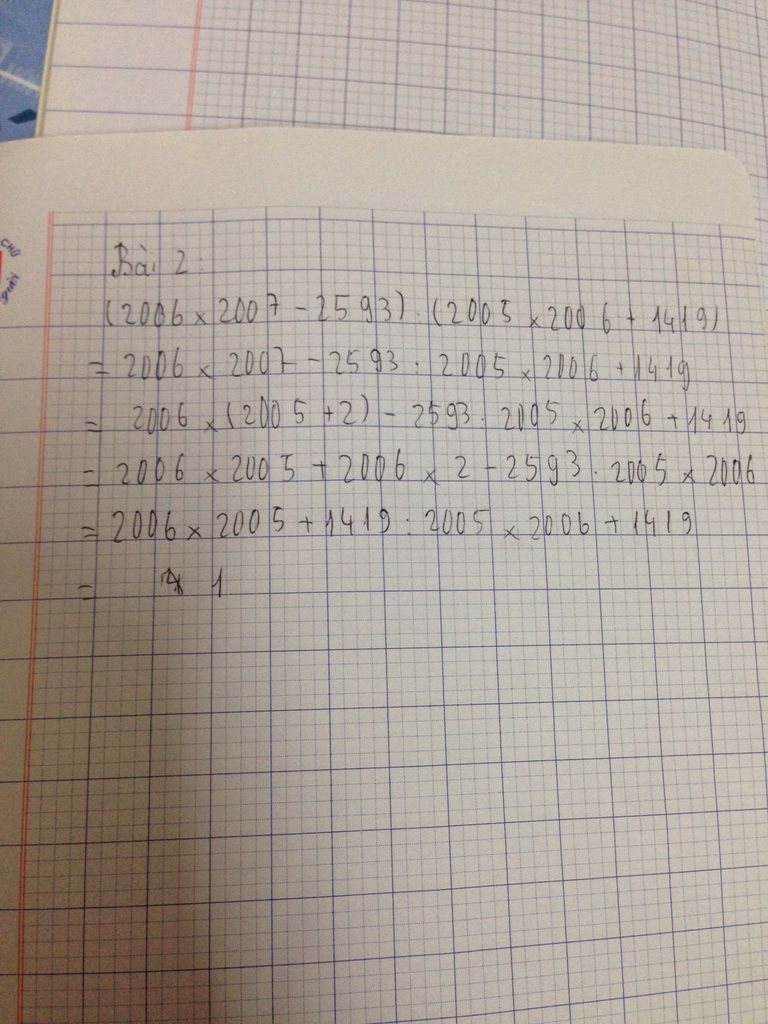 Bài 2:
(2006 x 2007 - 2593) : (2005 x 2006 + 1419)
= 2006 x 2007 - 2593 : 2005 x 2006 + 1419
= 2006 x (2005 + 2) - 2593 : 2005 x 2006 + 1419
= 2006 x 2005 + 2006 x 2 - 2593 : 2005 x 2006
= 2006 x 2005 + 1419 : 2005 x 2006 + 1419
= 1
CHỮ